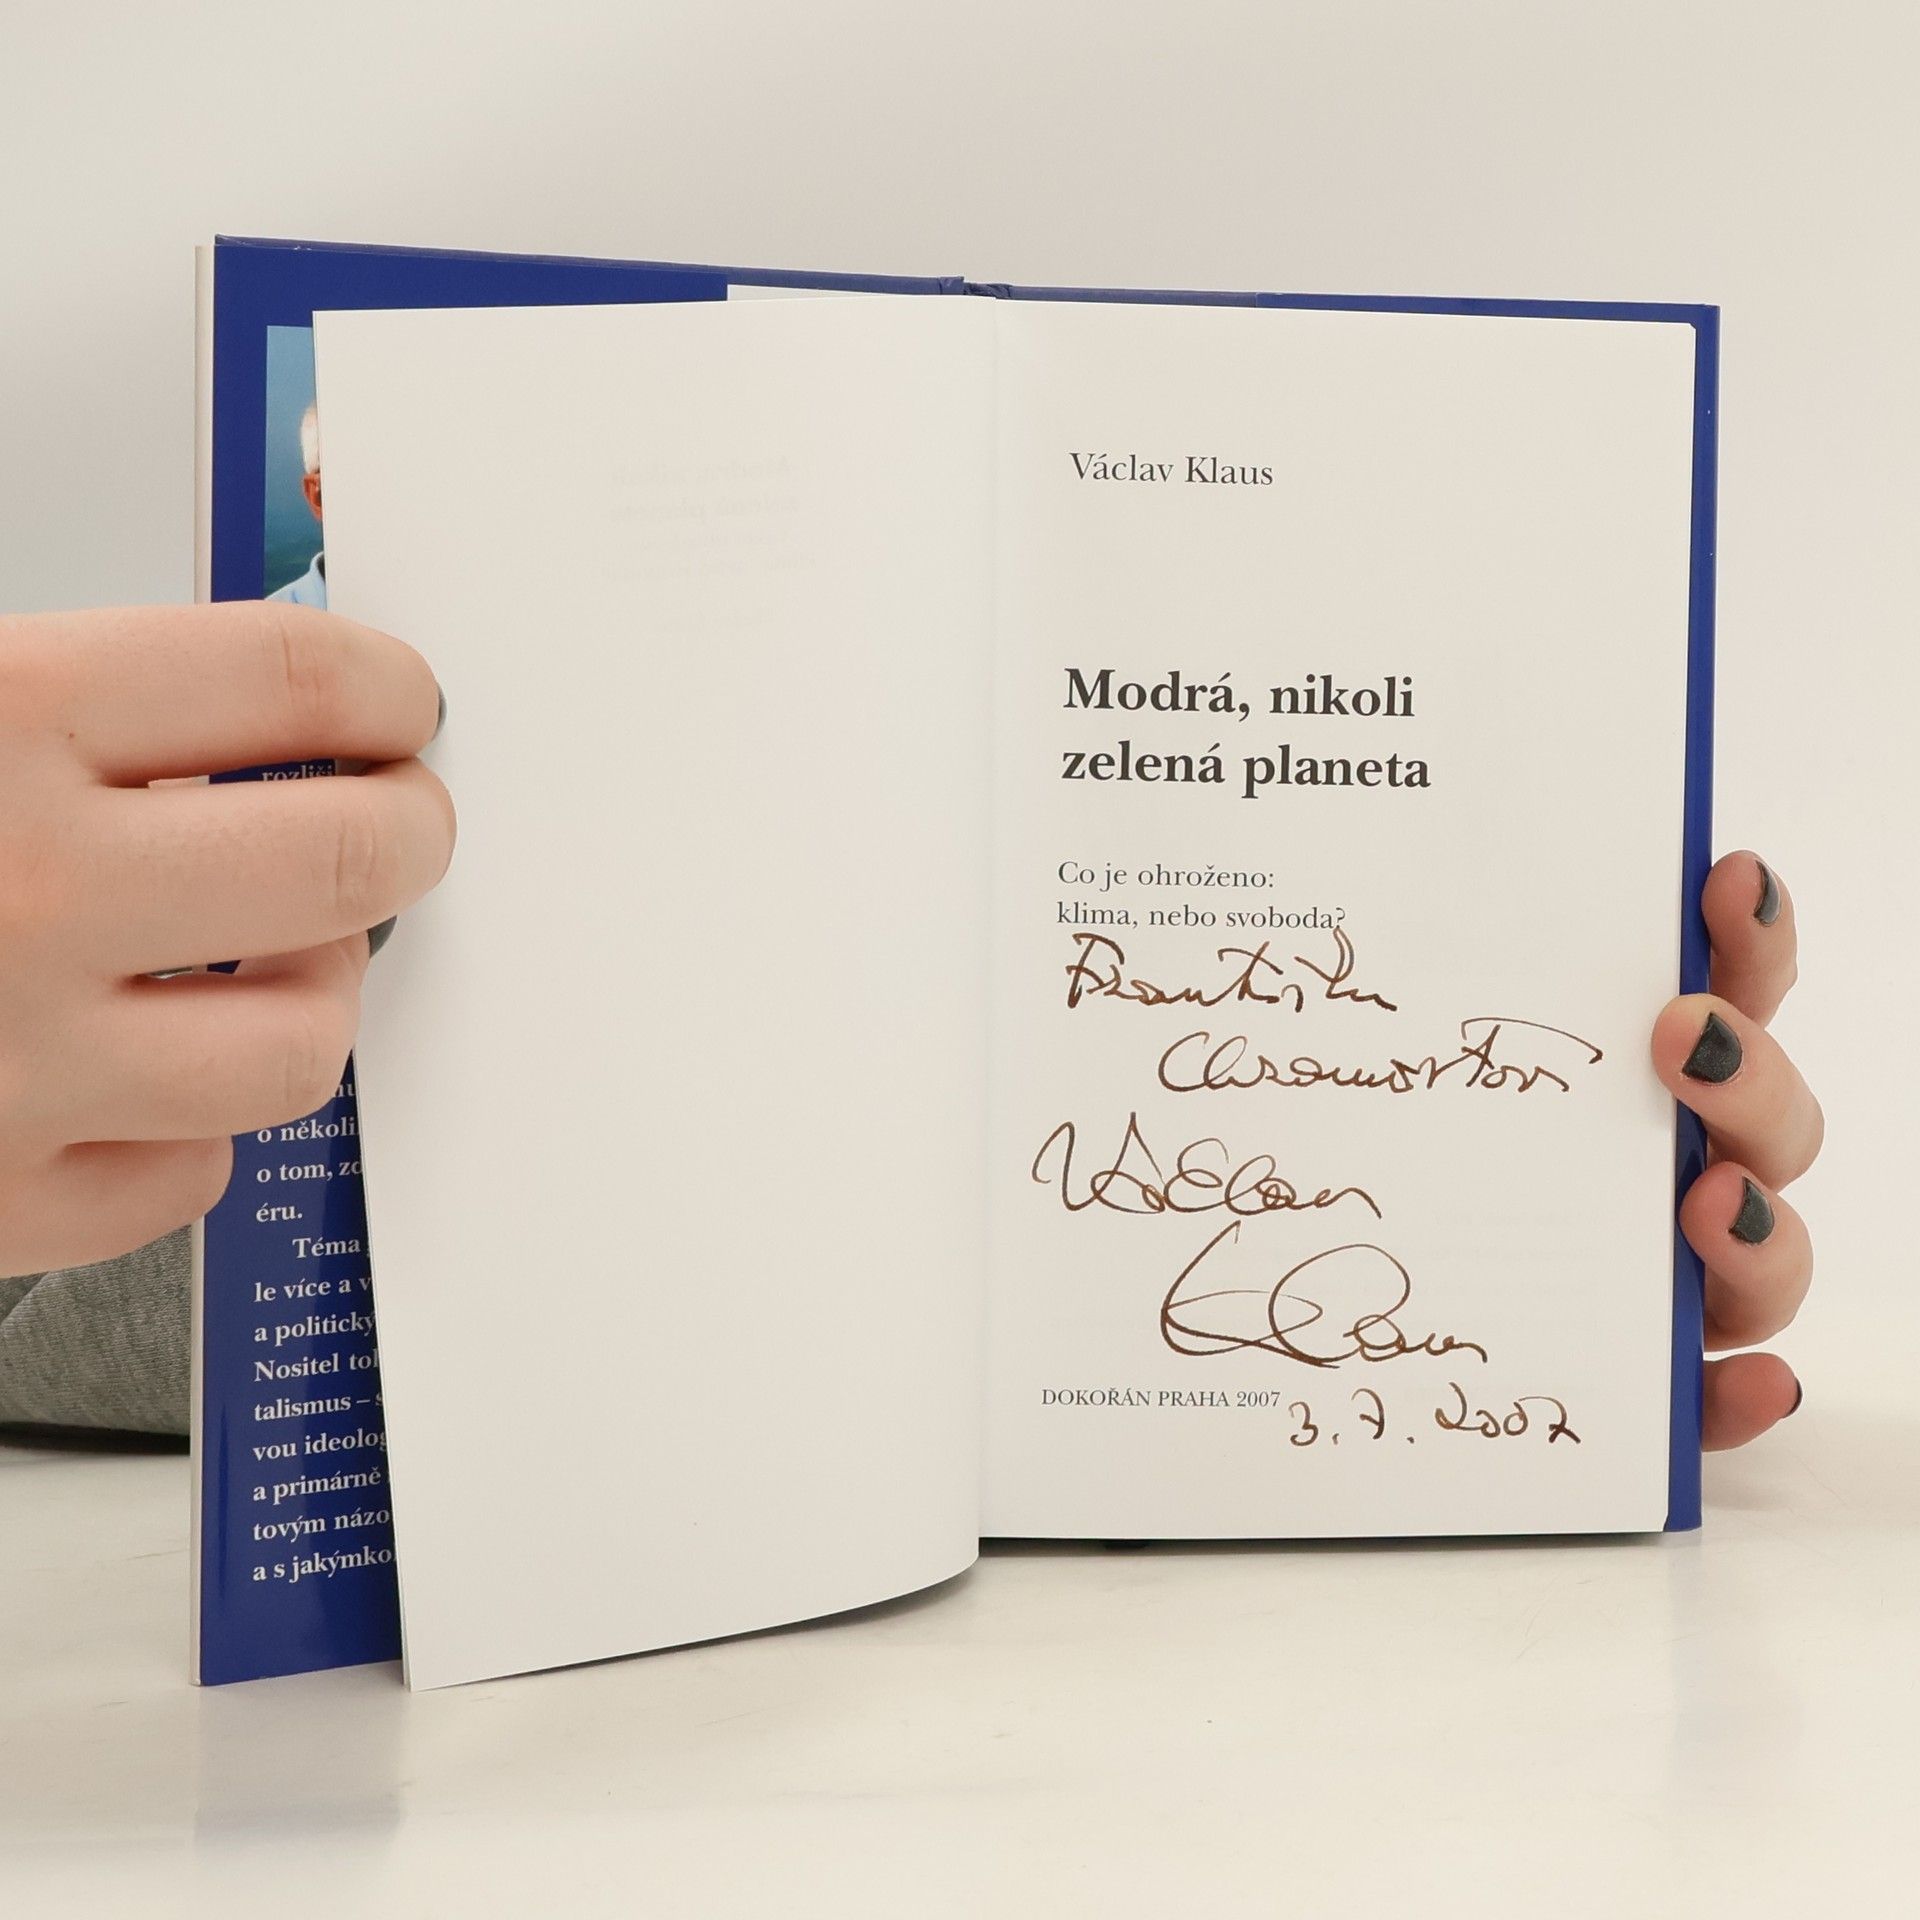 rozliši
o několi
o tom, zd
éru.
Téma
le více a v
a politický
Nositel tol
talismus – s
vou ideolog
a primárně
tovým názo
a s jakýmko
Václav Klaus
Modrá, nikoli
zelená planeta
Co je ohroženo:
klima, nebo svoboda?
Františku
Václav
Klaus
DOKOŘÁN PRAHA 2007
3. 7. 2007